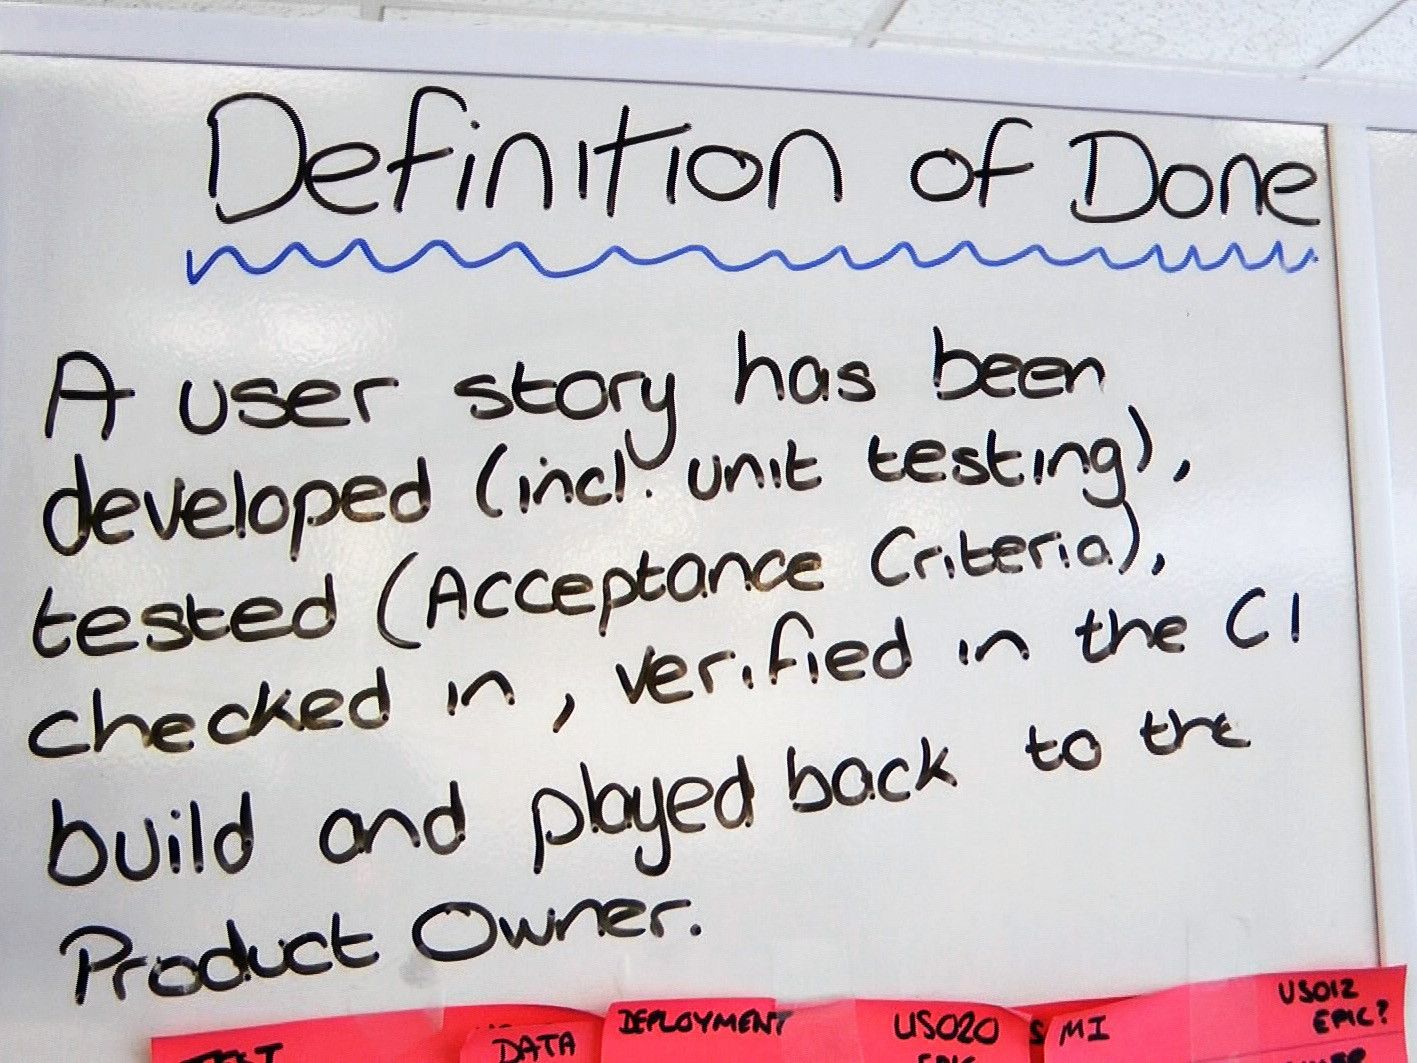 Definition of Done
A user story has been
developed (incl. unit testing),
tested (Acceptance Criteria),
checked in, verified in the CI
build and played back to the
Product Owner.
DATA
DEPLOYMENT
US020
EPIC
S MI
US012
EPIC?